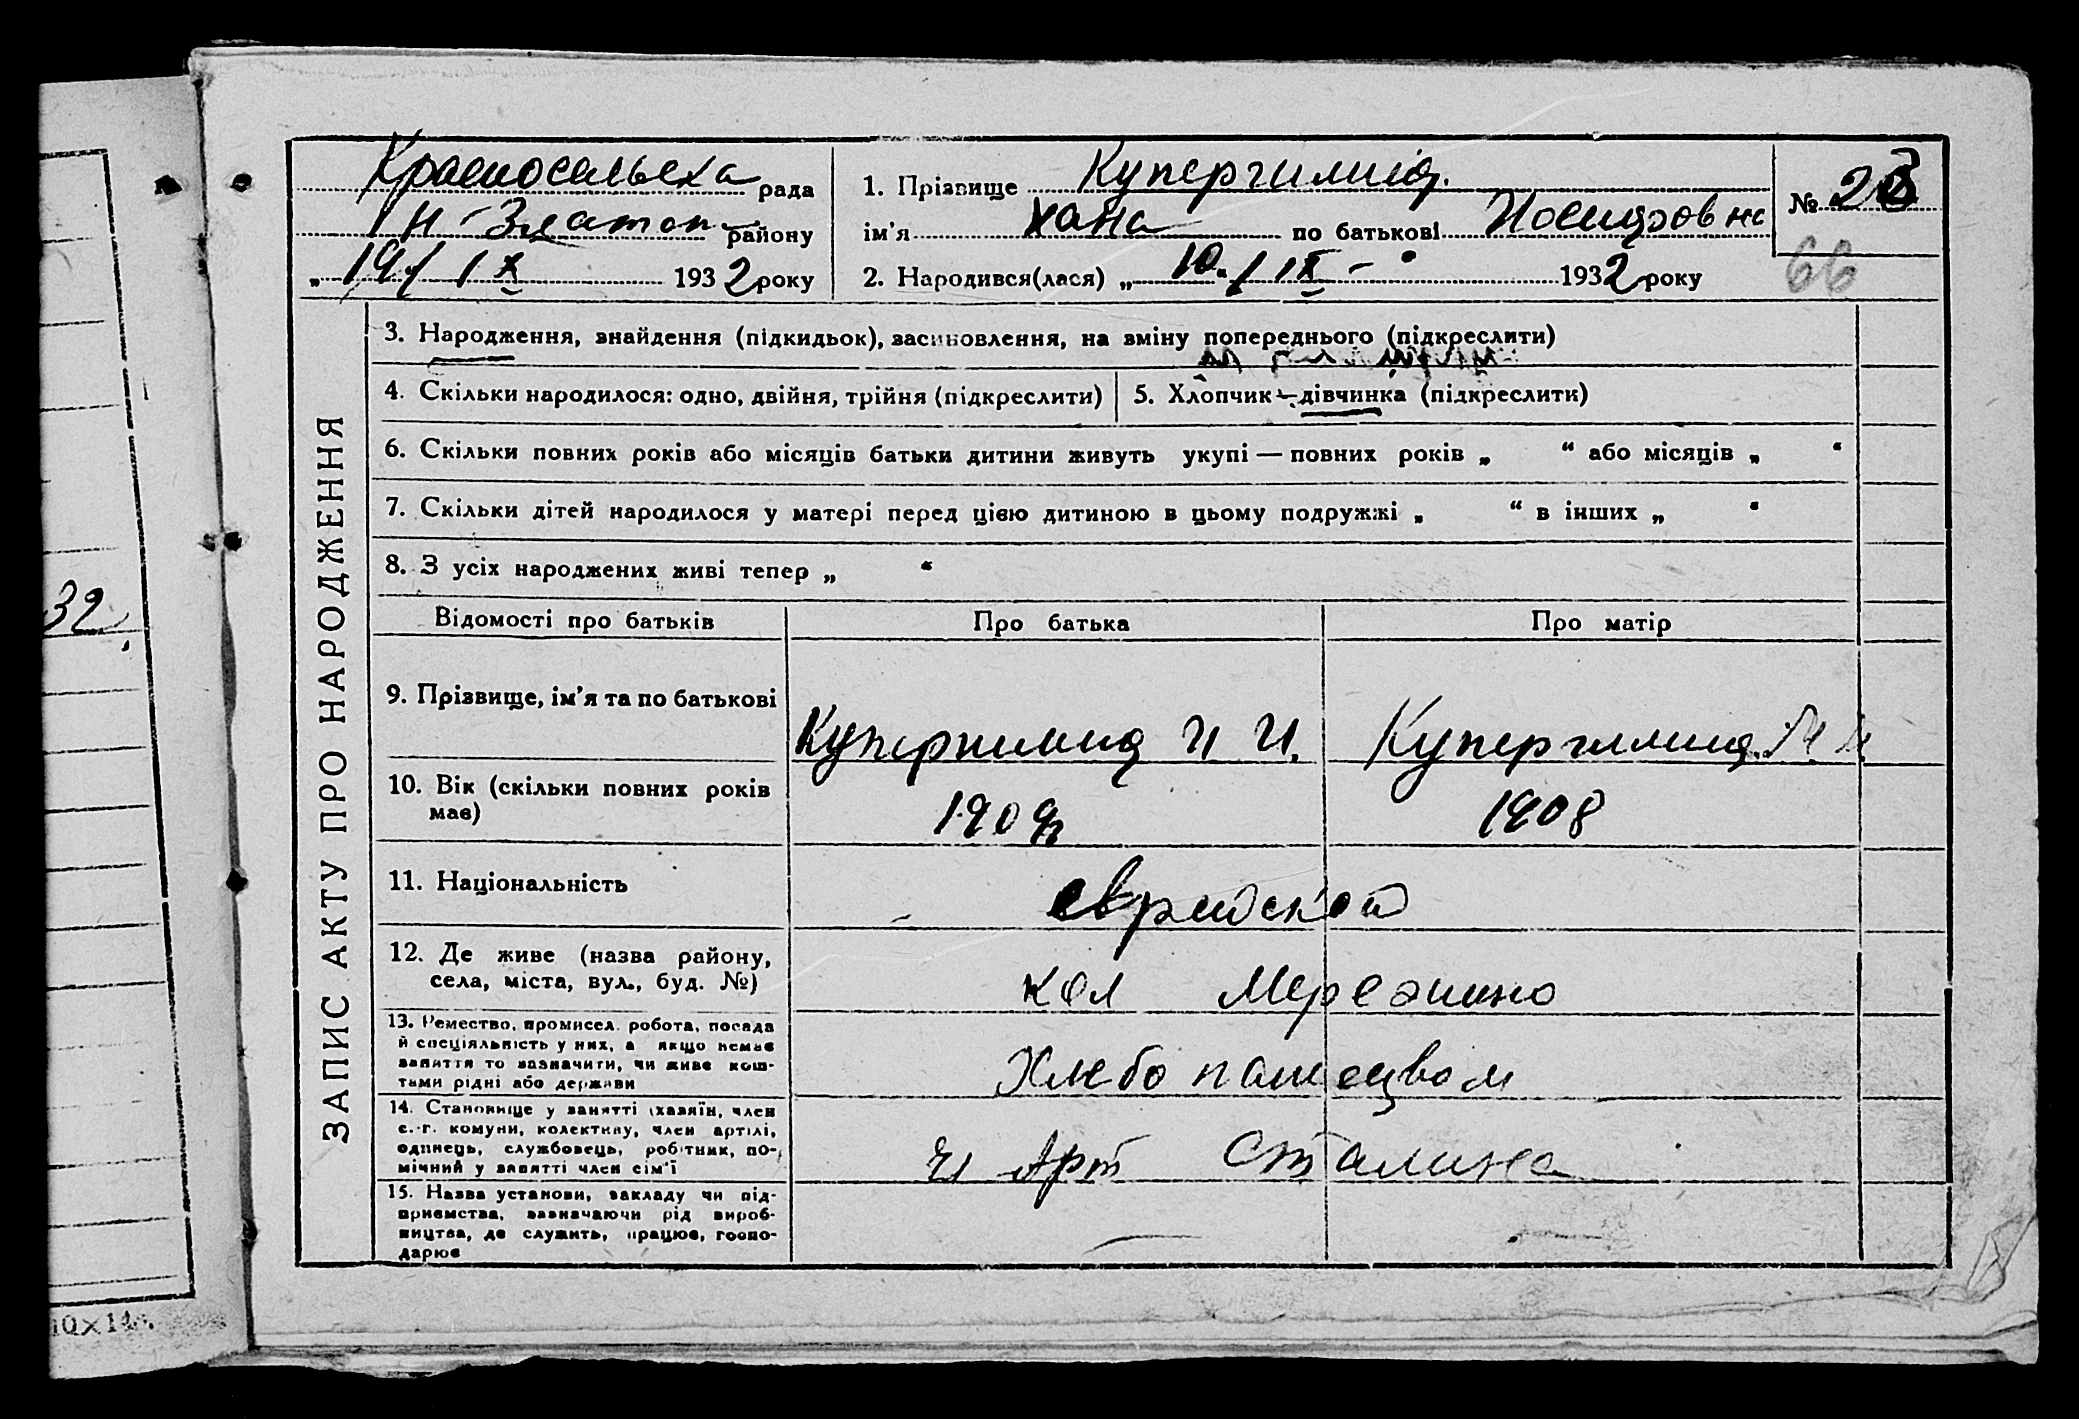 Красносельска рада
Н-Златоп району
„ 19/IX 1932 року
1. Прізвище Купершмид.
ім'я Хана по батькові
2. Народився(лася) „ 10. / IX - 1932 року
№ 23
66
ЗАПИС АКТУ ПРО НАРОДЖЕННЯ
3. Народження, знайдення (підкидьок), засиновлення, на зміну попереднього (підкреслити)
4. Скільки народилося: одно, двійня, трійня (підкреслити)
5. Хлопчик – дівчинка (підкреслити)
6. Скільки повних років або місяців батьки дитини живуть укупі — повних років „ “ або місяців „ “
7. Скільки дітей народилося у матері перед цією дитиною в цьому подружжі „ “ в інших „ “
8. З усіх народжених живі тепер „ “
Відомості про батьків
Про батька
Про матір
9. Прізвище, ім'я та по батькові
Купершмид И И.
Купершмид.
10. Вік (скільки повних років
має)
1909
1908
11. Національність
еврейской
12. Де живе (назва району,
села, міста, вул., буд. №)
кол Мережино
13. Ремество, промисел. робота, посада
й спеціяльність у них, а якщо немає
заняття то зазначити, чи живе кош-
тами рідні або держави
Хлебопашецвом
14. Становище у занятті (хазяїн, член
с.-г. комуни, колективу, член артілі,
одинець, службовець, робітник, по-
мічний у занятті член сім'ї
Арт Сталина
15. Назва установи, закладу чи під-
приємства, зазначаючи рід вироб-
ництва, де служить, працює, госпо-
дарює
32